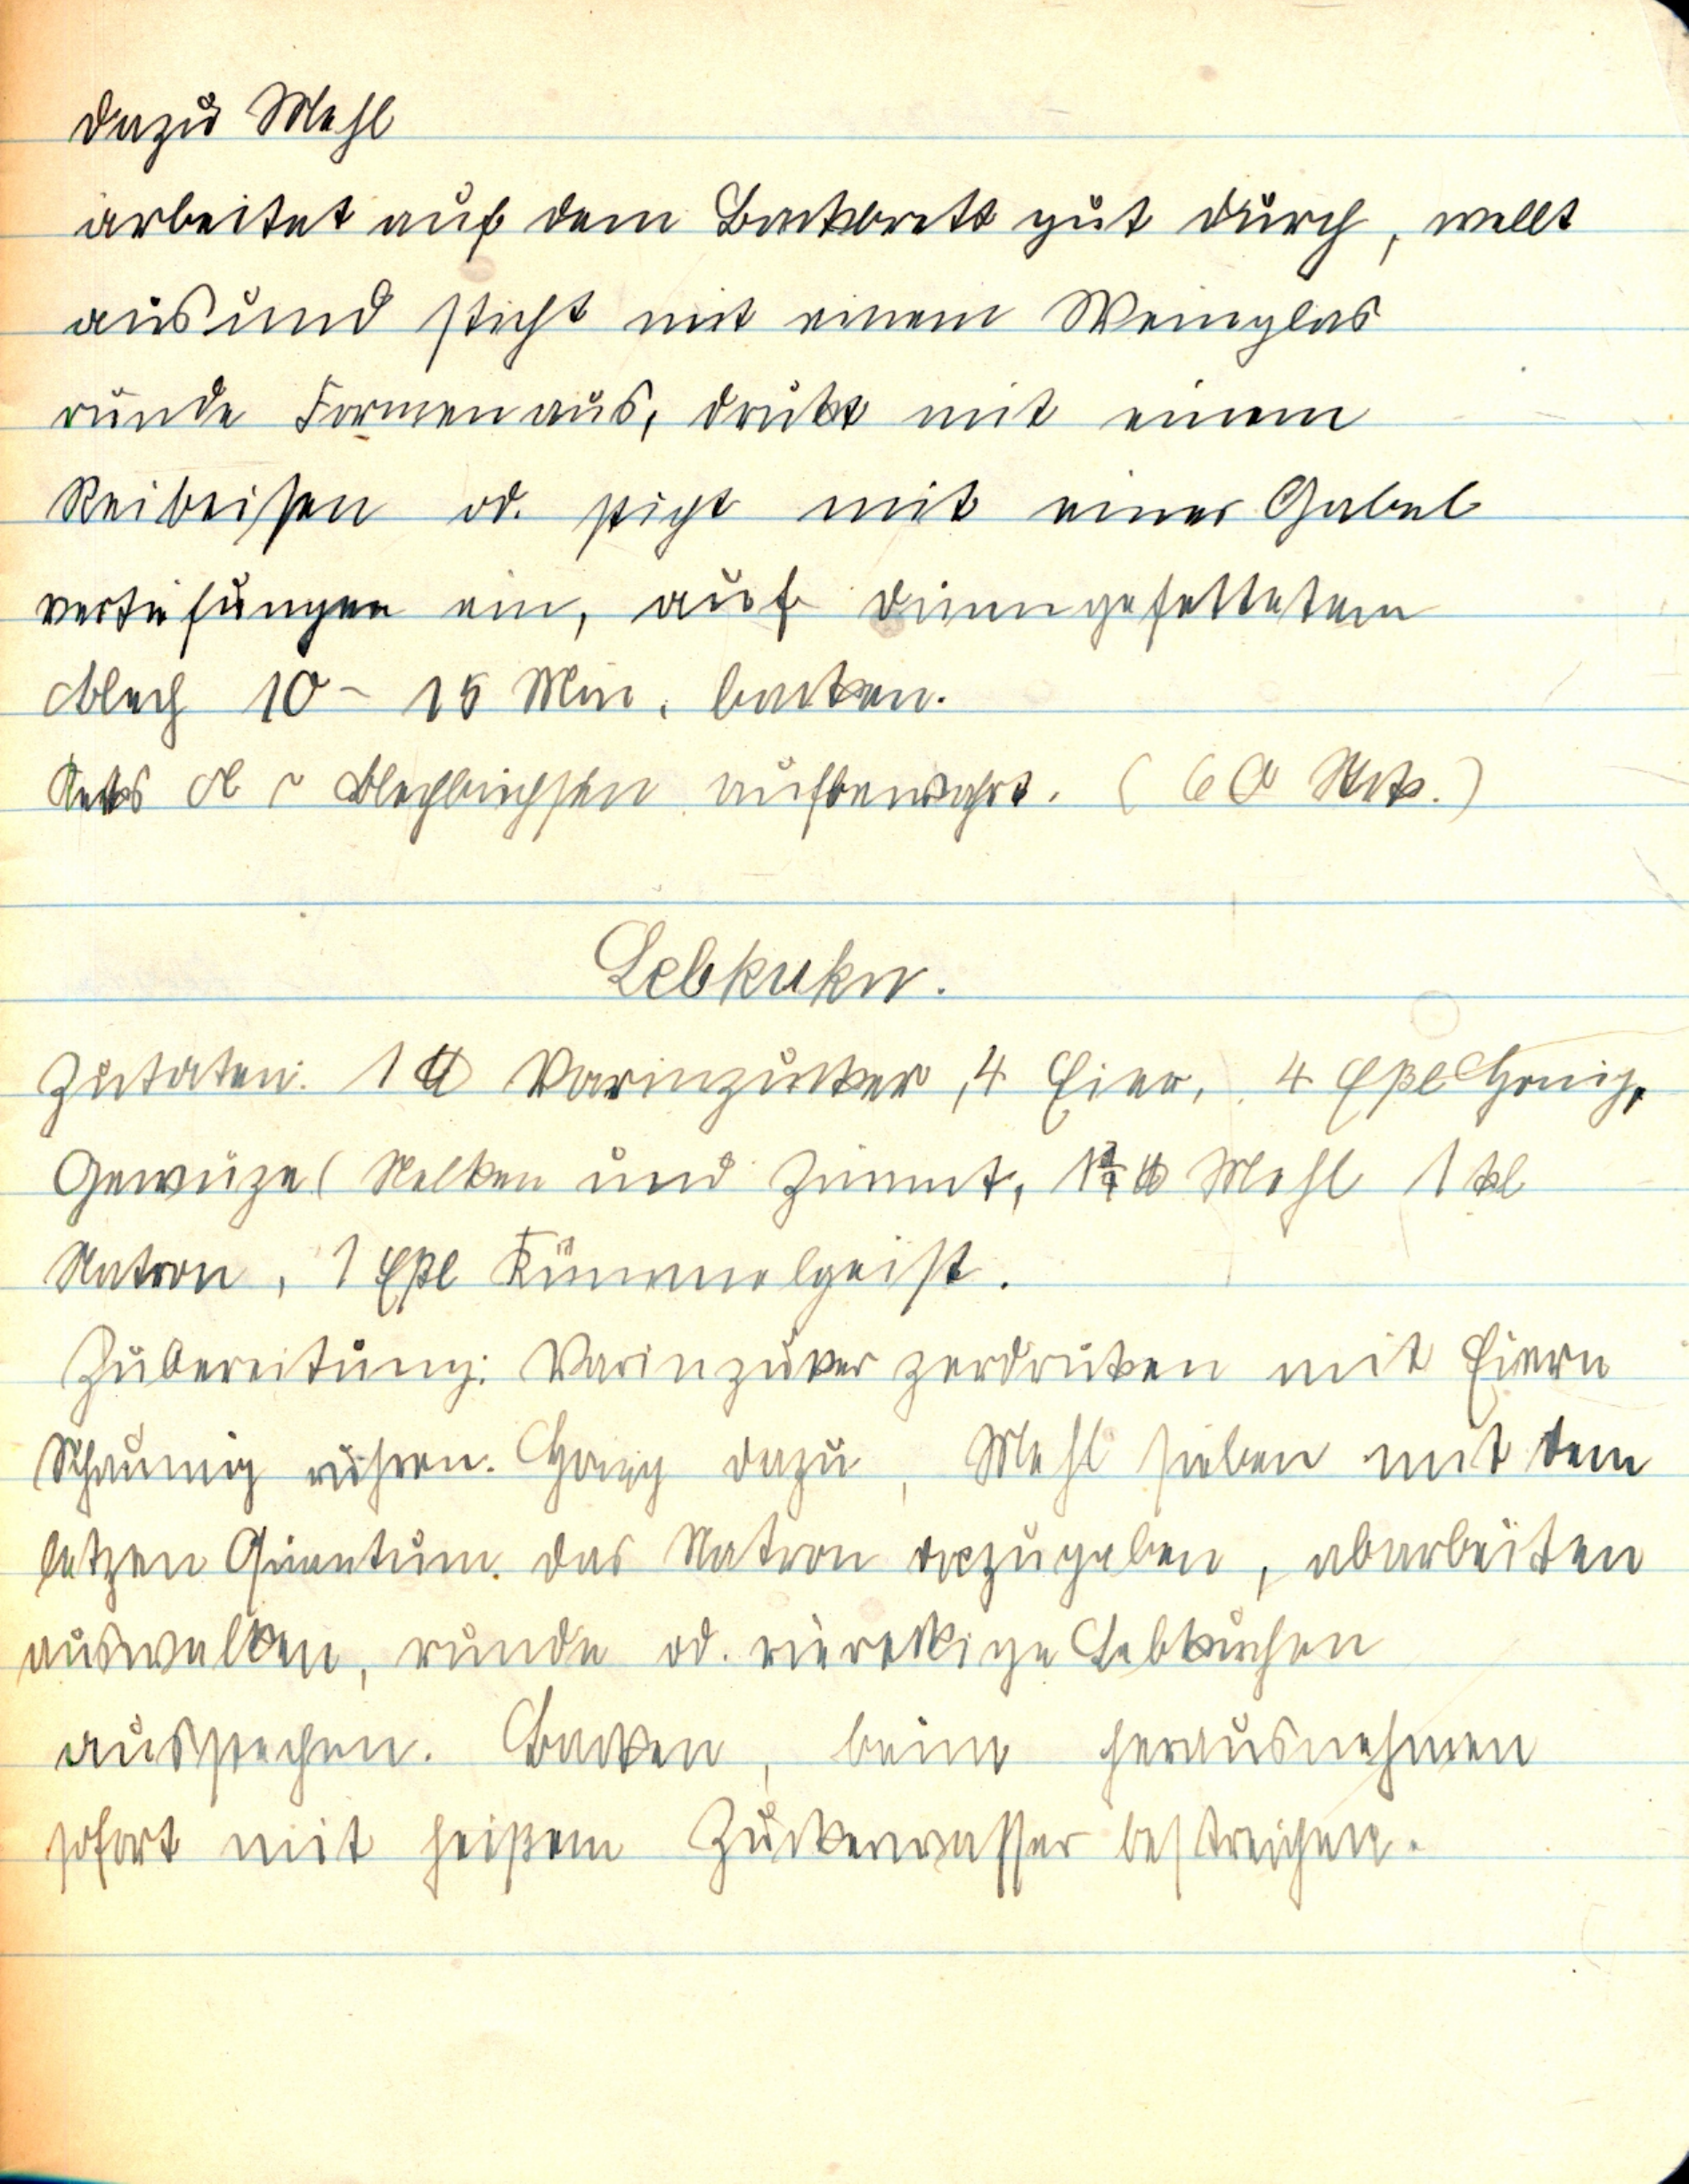 dazu Mehl
arbeitet auf dem Backbrett gut durch, wellt
aus und sticht mit einem Weinglas
runde Formen aus, drückt mit einem
Reibeisen od. sticht mit einer Gabel
vertifungen ein, auf dünngefettetem
Blech 10 - 15 Min. backen.
Keks Blechbüchsen aufbewahrt. (60 Stck.)
Lebkukn.
Zutaten: 1 ℔ Varinzucker, 4 Eier, 4 Eßl Honig,
Gewüze ( Nelken und Zimmt, 1¾ ℔ Mehl 1 kl
Natron, 1 Eßl Kümmelgeist.
Zubereitung: Varinzuker zerdrüken mit Eiern
Schaumig rühren. Honig dazu, Mehl sieben mit dem
letzen Quantum das Natron dazugeben, abarbeiten
auswalken, runde od. viereckige Lebkuchen
ausstechen. Backen, beim herausnehmen
sofort mit heißem Zuckerwasser bestreichen.